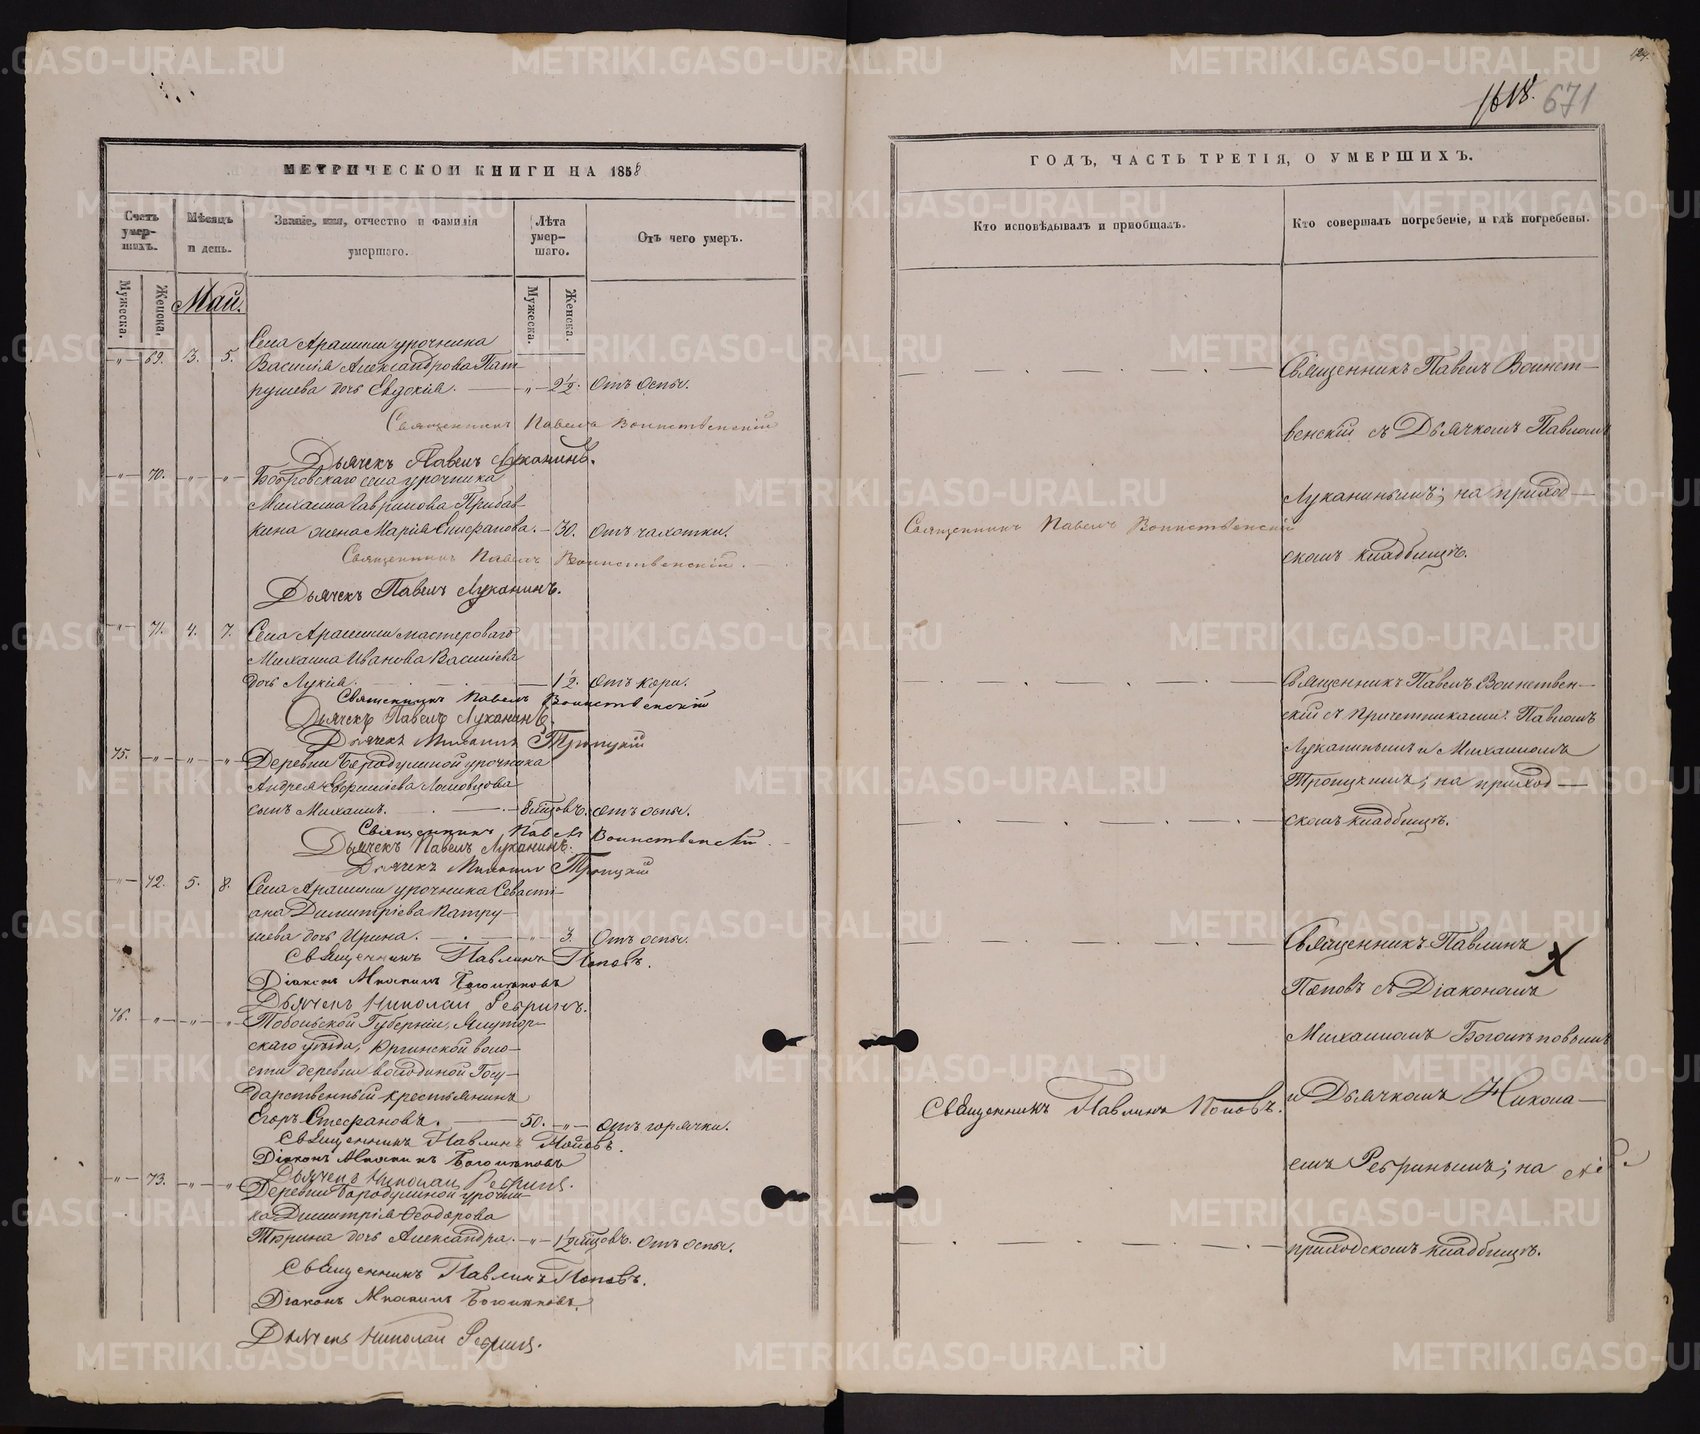 METRIKI.GASO-URAL.RU
1618. 671
МЕТРИЧЕСКОЙ КНИГИ НА 1858
Счетъ умер-шихъ.
Мѣсяцъ и день.
Званіе, имя, отчество и фамилія умершаго.
Лѣта умер-шаго.
Отъ чего умеръ.
Мужеска.
Женска.
Мужеска.
Женска.
Май.
Села Арамили урочника
" 69. 3. 5. Василія Александрова Пат-
рушева дочь Евдокія. " 2½. Отъ оспы.
Священникъ Павелъ Воинственскій
Дьячекъ Павелъ Луканинъ.
" 70. " " Бобровскаго села урочника
Михаила Гаврилова Прибав-
кина жена Марія Стефанова. 30. Отъ чахотки.
Священникъ Павелъ Воинственскій.
Дьячекъ Павелъ Луканинъ.
" 71. 4. 7. Села Арамили мастероваго
Михаила Иванова Васильева
дочь Лукія. 1½. Отъ кори.
Священникъ Павелъ Воинственскій
Дьячекъ Павелъ Луканинъ.
Дьячекъ Михаилъ Троицкій
75. " " " Деревни Бородулиной урочника
Андрея
сынъ Михаилъ. 8 мѣсцовъ. отъ оспы.
Священникъ Павелъ Воинственскій.
Дьячекъ Павелъ Луканинъ.
Дьячекъ Михаилъ Троицкій
" 72. 5. 8. Села Арамили урочника Севасті-
ана Димитріева Патру-
шева дочь Ирина. " 3. Отъ оспы.
Священникъ Павлинъ Поповъ.
Діаконъ Михаилъ Боголѣповъ
Дьячекъ Николай Ребринъ.
76. " " " Тобольской Губерніи, Ялутор-
скаго уѣзда, Юргинской воло-
сти деревни Володиной Госу-
дарственный крестьянинъ
Егоръ Стефановъ. 50. " Отъ горячки.
Священникъ Павлинъ Поповъ.
Діаконъ Михаилъ Боголѣповъ
Дьячекъ Николай Ребринъ.
" 73. " " Деревни Бородулиной урочни-
ка Димитрія Ѳеодорова
Тюрина дочь Александра. " 1½ мѣсцовъ. Отъ оспы.
Священникъ Павлинъ Поповъ.
Діаконъ Михаилъ Боголѣповъ.
Дьячекъ Николай Ребринъ.
ГОДЪ, ЧАСТЬ ТРЕТІЯ, О УМЕРШИХЪ.
Кто исповѣдывалъ и пріобщалъ.
Кто совершалъ погребеніе, и гдѣ погребены.
Священникъ Павелъ Воинст-
венскій съ Дьячкомъ Павломъ
Луканинымъ; на приход-
Священникъ Павелъ Воинственскій
скомъ кладбищѣ.
Священникъ Павелъ Воинствен-
скій съ Причетниками: Павломъ
Луканинымъ и Михаиломъ
Троицкимъ; на приход-
скомъ кладбищѣ.
Священникъ Павлинъ
Поповъ съ Діакономъ
Михаиломъ Боголѣповымъ
Священникъ Павлинъ Поповъ.
и Дьячкомъ Никола-
емъ Ребринымъ; на
приходскомъ кладбищѣ.